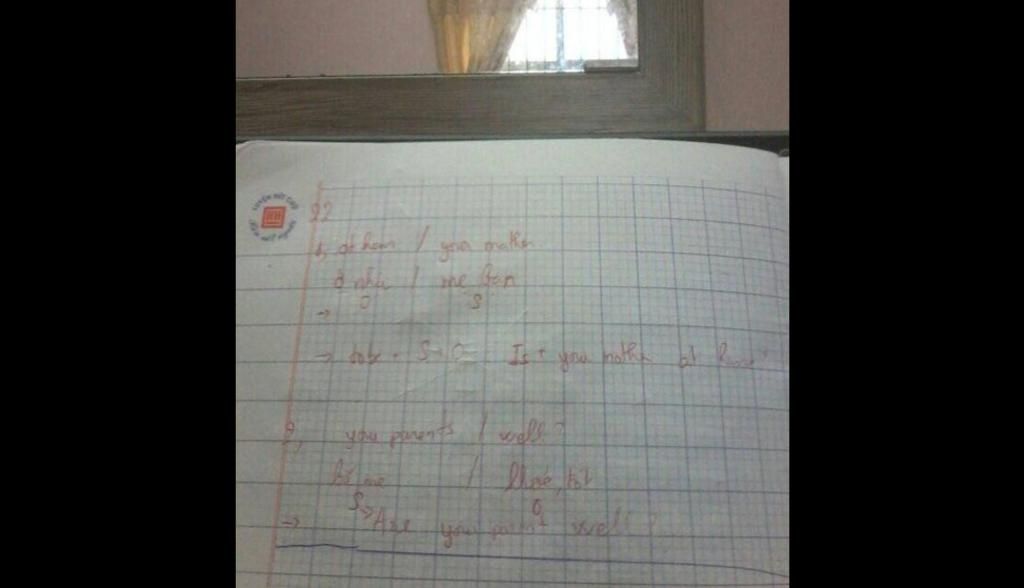 22
1, at hom / you mother
ở nhà / mẹ bạn
O S
→
→ tobe + S + O Is + you mother at home?
2, you parents / well?
bố mẹ / khỏe, tốt
S O
→ Are you parent well?